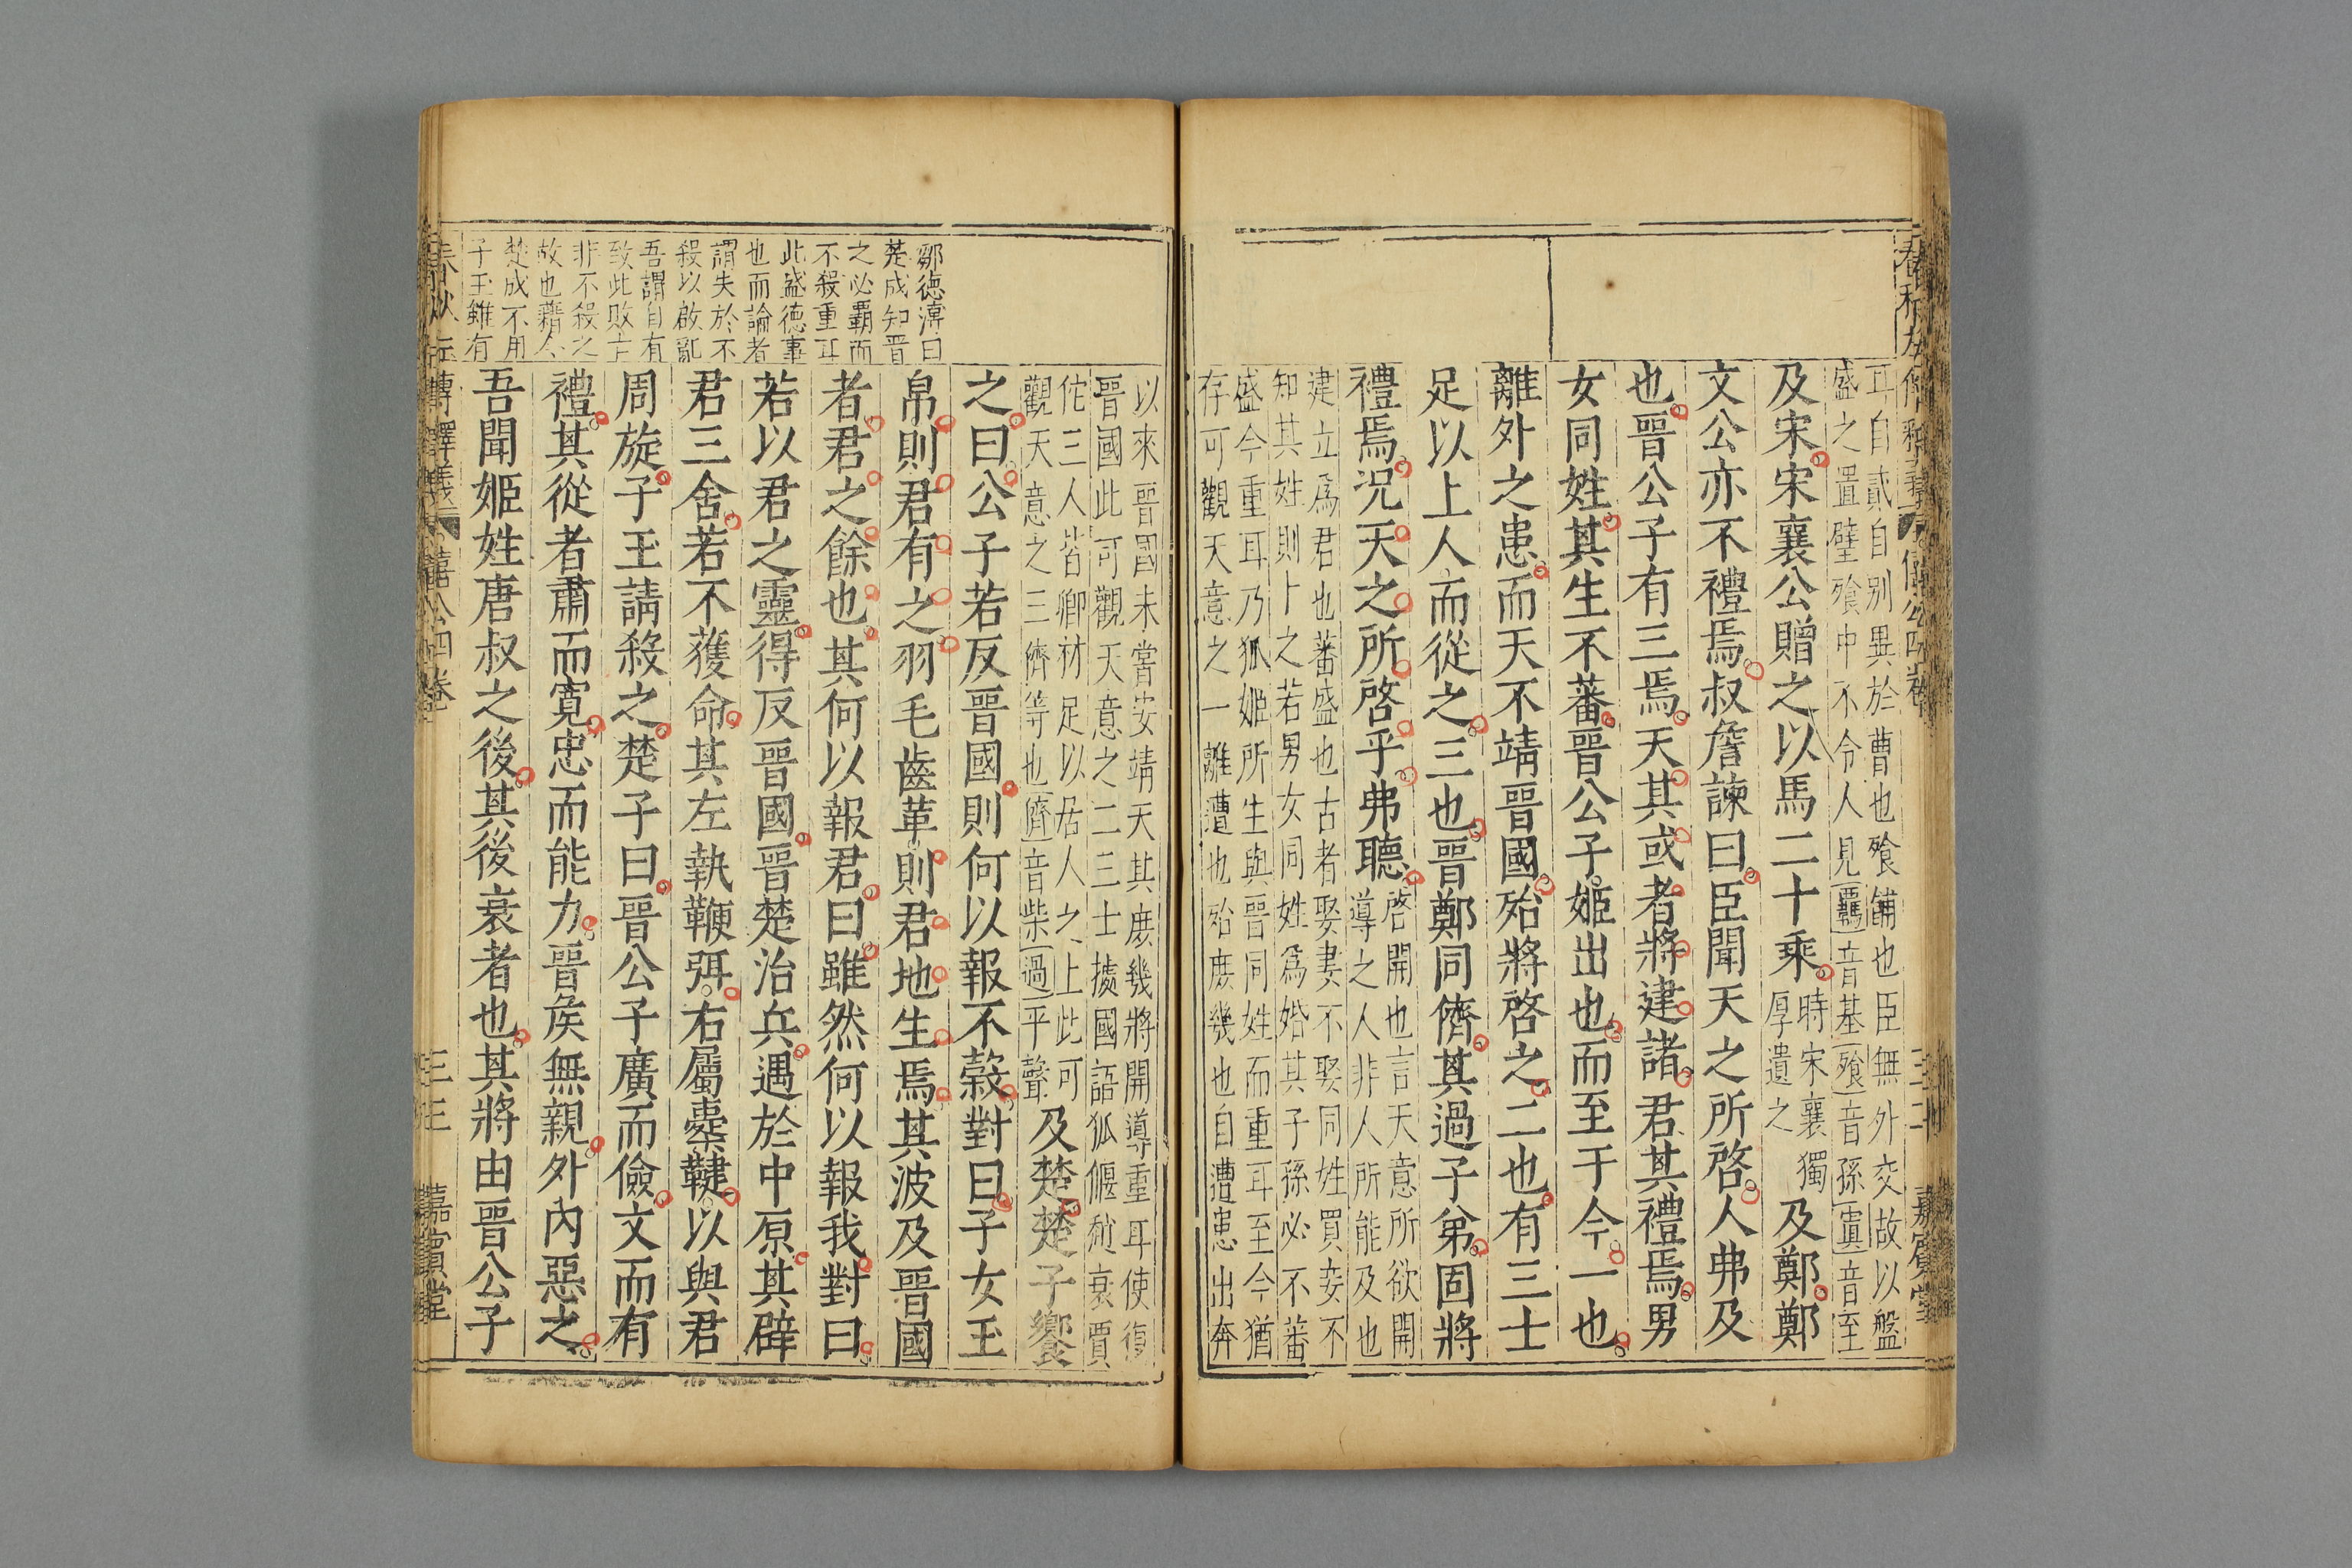 耳自貳自別異於曹也飱餔也臣無外交故以盤
盛之置璧飱中不令人見羈音基飱音孫寘音至
及宋宋襄公贈之以馬二十乘時宋襄獨
厚遺之及鄭鄭
文公亦不禮焉叔詹諫曰臣聞天之所啓人弗及
也晉公子有三焉天其或者將建諸君其禮焉男
女同姓其生不蕃晉公子姬出也而至于今一也
離外之患而天不靖晉國殆將啓之二也有三士
足以上人而從之三也晉鄭同儕其過子弟固將
禮焉況天之所啓乎弗聽啓開也言天意所欲開
導之人非人所能及也
建立爲君也蕃盛也古者娶妻不娶同姓買妾不
知其姓則卜之若男女同姓爲婚其子孫必不蕃
盛今重耳乃狐姬所生與晉同姓而重耳至今猶
存可觀天意之一離遭也殆庶幾也自遭患出奔
鄒德溥曰
楚成知晉
之必霸而
不殺重耳
此盛德事
也而論者
謂失於不
殺以啟亂
吾謂自有
致此敗亡
非不殺之
故也藉令
楚成不用
子玉雖有
以來晉國未嘗安靖天其庶幾將開導重耳使復
晉國此可觀天意之二三士據國語狐偃趙衰賈
佗三人皆卿材足以居人之上此可
觀天意之三儕等也儕音柴過平聲及楚楚子饗
之曰公子若反晉國則何以報不穀對曰子女玉
帛則君有之羽毛齒革則君地生焉其波及晉國
者君之餘也其何以報君曰雖然何以報我對曰
若以君之靈得反晉國晉楚治兵遇於中原其辟
君三舍若不獲命其左執鞭弭右屬櫜鞬以與君
周旋子玉請殺之楚子曰晉公子廣而儉文而有
禮其從者肅而寬忠而能力晉侯無親外內惡之
吾聞姬姓唐叔之後其後衰者也其將由晉公子
傳釋義 僖公四卷 三三 嘉賓堂